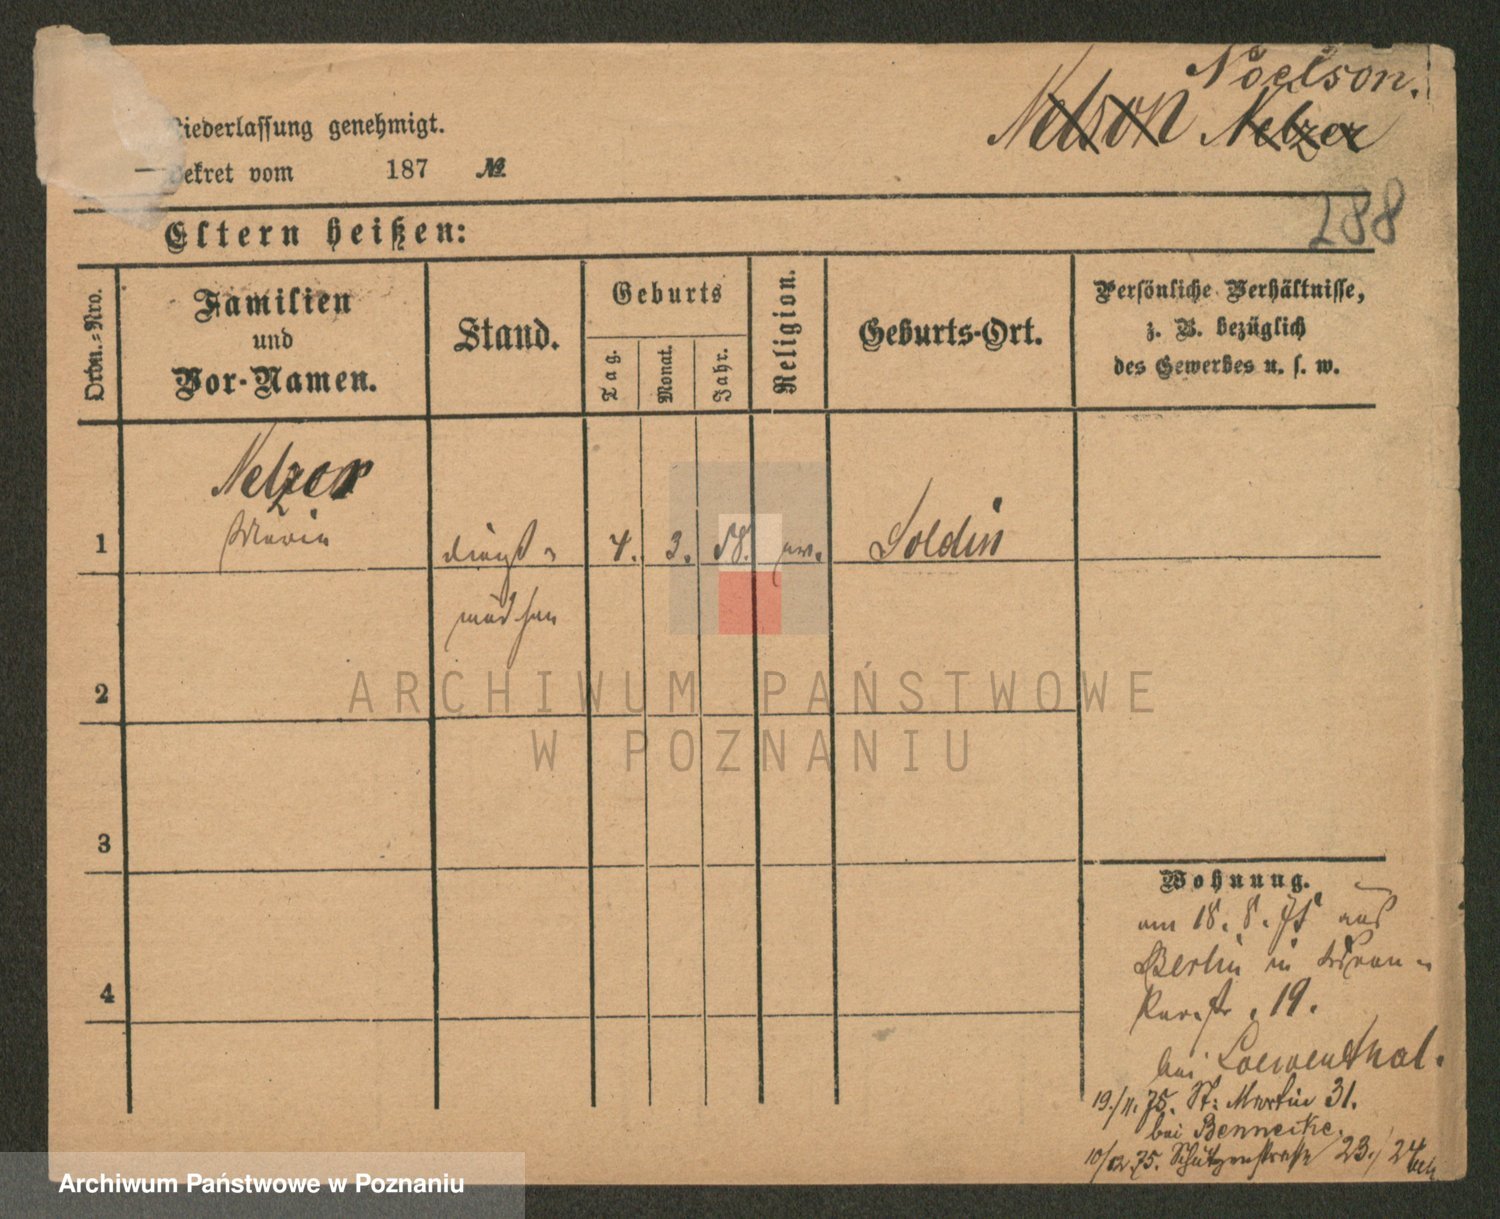 Noelson.
Nelson Nelzer
Niederlassung genehmigt.
Dekret vom 187 №
288
Eltern heißen:
Ordn.-Nro.
Familien
und
Vor-Namen.
Stand.
Geburts
Tag.
Monat.
Jahr.
Religion.
Geburts-Ort.
Persönliche Verhältnisse,
z. B. bezüglich
des Gewerbes u. s. w.
1
Nelzer
Marie
Dienst-
mädchen
4. 3. 58. ev.
Soldin
2
3
4
Wohnung.
am 18. 8. 75 aus
Berlin in
19.
bei Loewenthal.
19./11. 75. St: Martin 31.
bei Bennecke.
10/12 75. Schützenstraße 23./24
ARCHIWUM PAŃSTWOWE
W POZNANIU
Archiwum Państwowe w Poznaniu